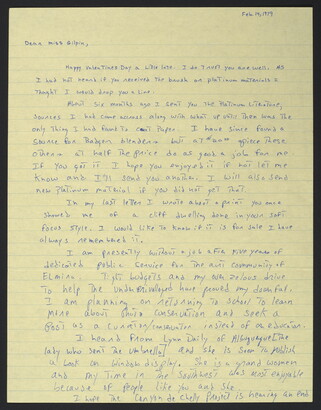 Feb. 14, 1979
Dear Miss Gilpin,
Happy Valentines Day a little late. I do trust you are well. As
I had not heard if you received the booth on platinum materials I
thought I would drop you a line.
About six months ago I sent you the Platinum Literature,
Sources I had come across along with what up until then was the
only thing I had found to coat Paper. I have since found a
source for Badger blender but at piece these
others at half the price do as good a job for me
If you got it I hope you enjoyed it if not let me
know and I'll send you another. I will also send
new platinum material if you did not get that.
In my last letter I wrote about a print you once
showed me of a cliff dwelling done in your soft
focus style. I would like to know if it is for sale I have
always remembered it.
I am presently without a job after five years of
dedicated Public Service for the Arts Community of
ELMIRA. Tight budgets and my own zealous drive
to help the underdeveloped have proved my downfall.
I am planning on returning to school to learn
more about photo conservation and seek a
position as a curator/conservator instead of an educator.
I heard from Lynn Daily of Albuquerque (the
lady who sent the umbrella) and she is soon to publish
a book on window displays. She is a grand women
and my time in the Southwest was most enjoyable
because of people like you and she.
I hope the Canyon de Chelly Project is nearing an end